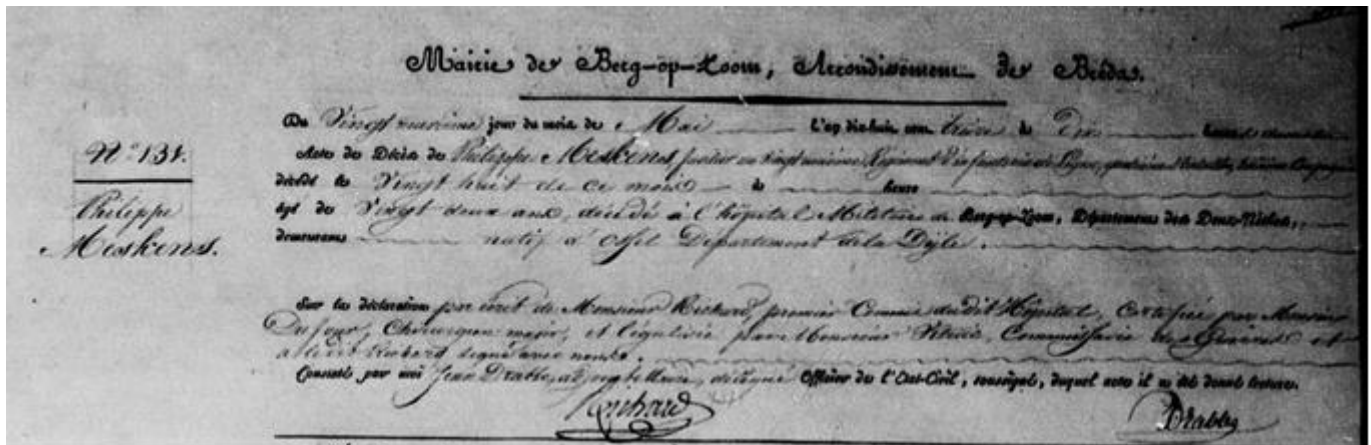 Mairie de Berg-op-Zoom, Arrondissement de Bréda.
N.° 131.
Philippe
Meskens.
Du Vingt neuvième jour du mois de Mai l'an dix-huit cent treize à Dix heures
Acte de Décès de Philippe Meskens, fusilier au vingt unième Régiment d'infanterie de Ligne, Bataillon, Compagnie
décédé le Vingt huit de ce mois à heure
âgé de Vingt deux ans, décédé à l'hôpital Militaire de Berg-op-Zoom, Département des Deux-Nèthes,
demeurant natif d'Ossel Département de la Dyle.
Sur la déclaration par écrit de Monsieur Richard, premier Commis du dit Hôpital, Certifiée par Monsieur
Dufour, Chirurgien major, et légalisée par Monsieur Commissaire des Guerres et
a le dit Richard signé avec nous.
Constaté par moi Jean Drabbe, délégué Officier de l'Etat-Civil, soussigné, duquel acte il a été donné lecture.
Richard
Drabbe